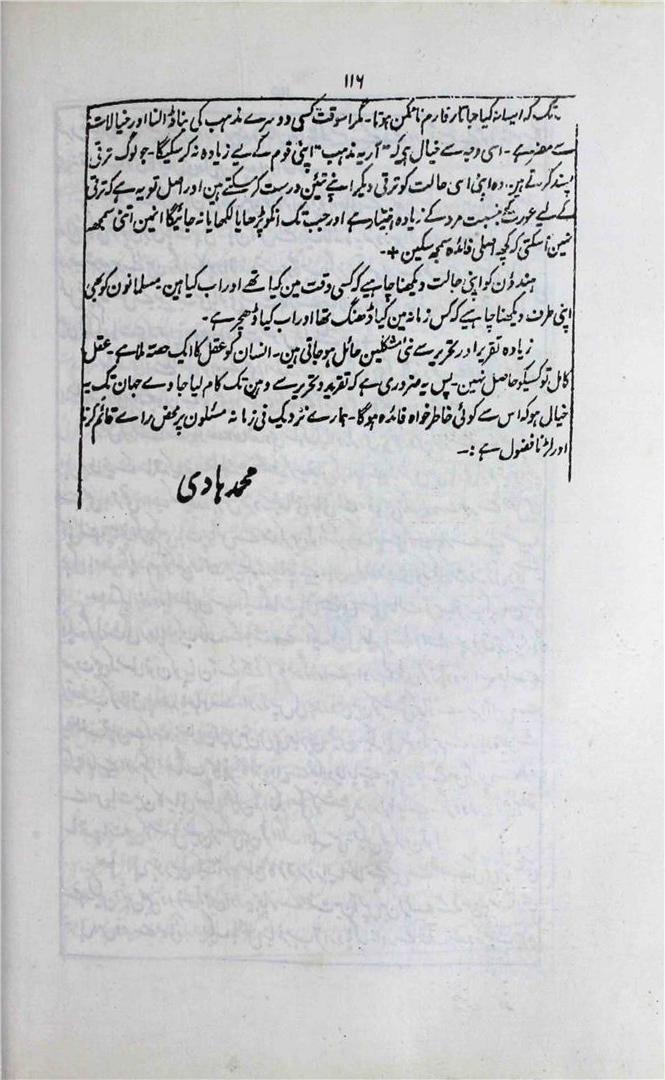 ۱۱۶
تک کہ ایسا نہ کیا جاتا رفارم ناممکن ہوتا۔ مگر اسوقت کسی دوسرے مذہب کی بنا ڈالنا اور خیالات
سے مضر ہے۔ اسی وجہ سے خیال ہے کہ "آریہ مذہب" اپنی قوم کے لیے زیادہ نہ کر سکیگا۔ جو لوگ ترقی
پسند کرتے ہین۔ وہ اپنی اسی حالت کو ترقی دیکر اپنے تئین درست کر سکتے ہین اور اصل تو یہ ہے کہ ترقی
کے لیے عورت کو بنسبت مرد کے زیادہ اختیار ہے اور جب تک انکو پڑھایا لکھایا نہ جائیگا انہین اتنی سمجھ
نہین آسکتی کہ کچھ اصلی فائدہ سمجھ سکین +۔
ہندؤن کو اپنی حالت دیکھنا چاہیے کہ کسی وقت مین کیا تھے اور اب کیا ہین۔ مسلمانون کو بھی
اپنی طرف دیکھنا چاہیے کہ کس زمانہ مین کیا ڈھنگ تھا اور اب کیا ڈھچر ہے۔
زیادہ تقریر اور تحریر سے نئی مشکلین حائل ہو جاتی ہین۔ انسان کو عقل کا ایک حصہ ملا ہے۔ عقل
کامل تو کسیکو حاصل نہین۔ پس یہ ضروری ہے کہ تقریر و تحریر سے وہین تک کام لیا جاوے جہان تک یہ
خیال ہو کہ اس سے کوئی خاطر خواہ فائدہ ہوگا۔ ہمارے نزدیک فی زمانہ مسئلون پر محض راے قائم کرنا
اور لڑنا فضول ہے :۔
محمد ہادی